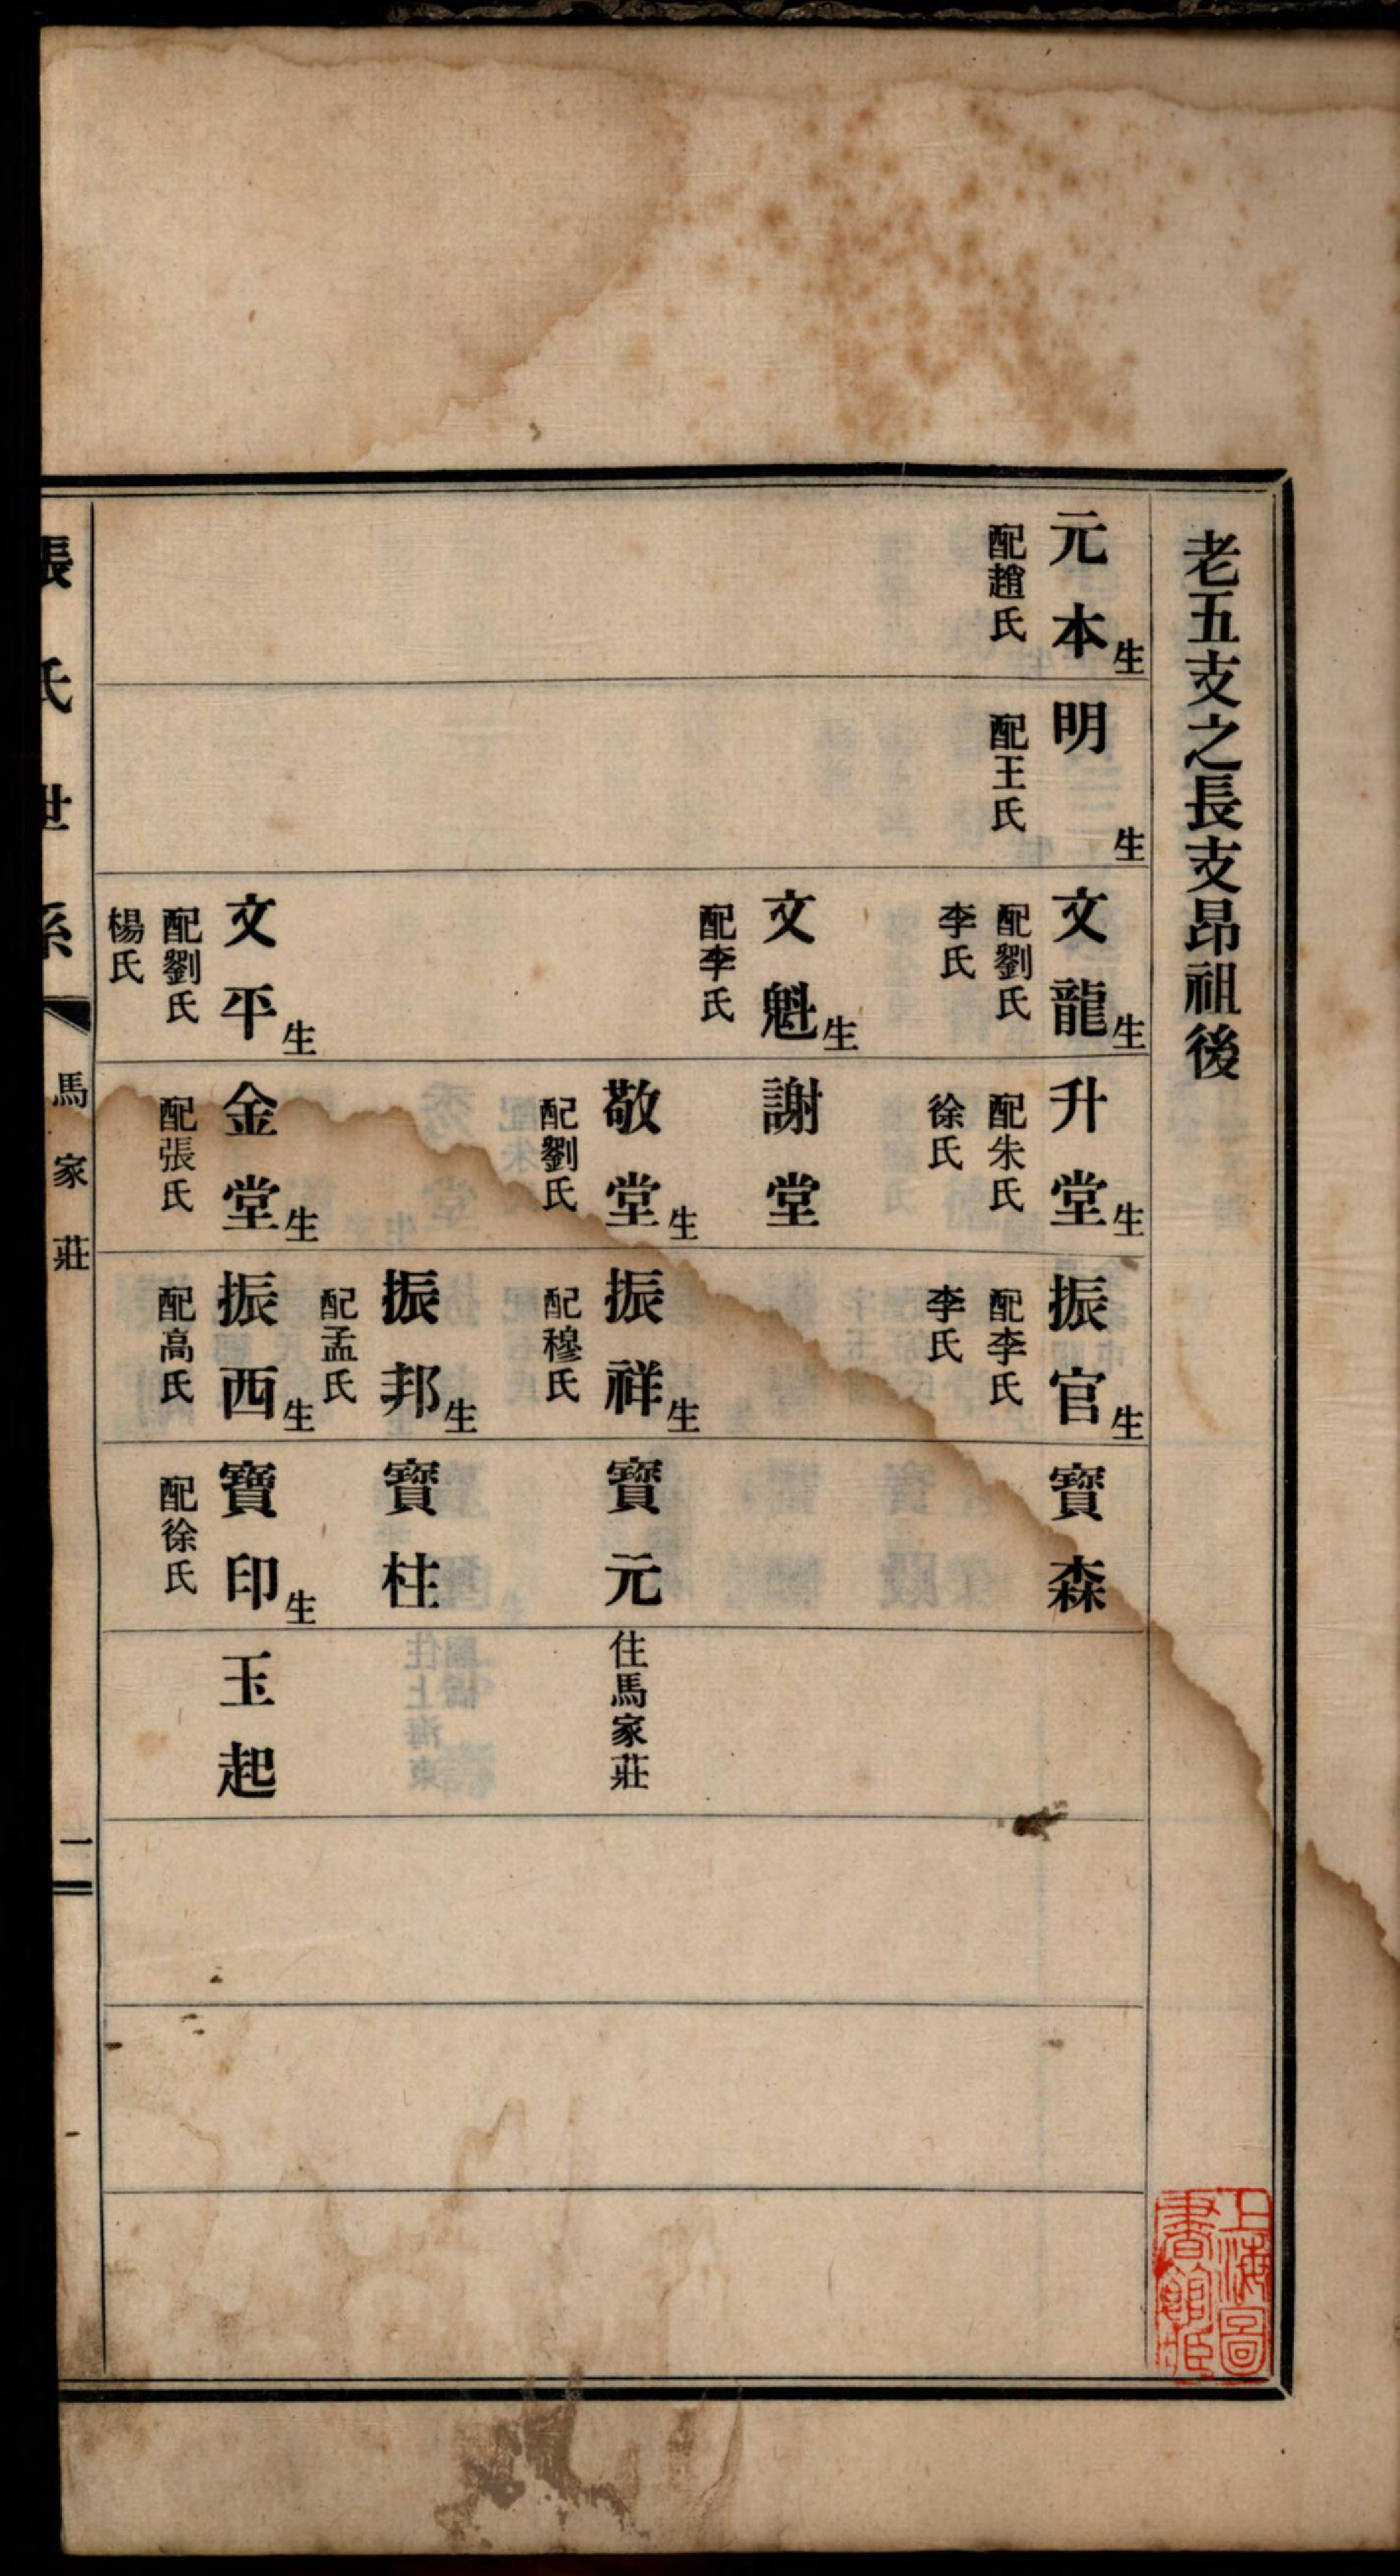 老五支之長支昂祖後
元本生
配趙氏
明生
配王氏
文龍生
配劉氏
李氏
升堂生
配朱氏
徐氏
振官生
配李氏
李氏
寶森
文魁生
配李氏
謝堂
敬堂生
配劉氏
振祥生
配穆氏
寶元
住馬家莊
振邦生
配孟氏
寶柱
文平生
配劉氏
楊氏
金堂生
配張氏
振西生
配高氏
寶印生
配徐氏
玉起
張氏世系
馬家莊
一
上海圖
書館藏